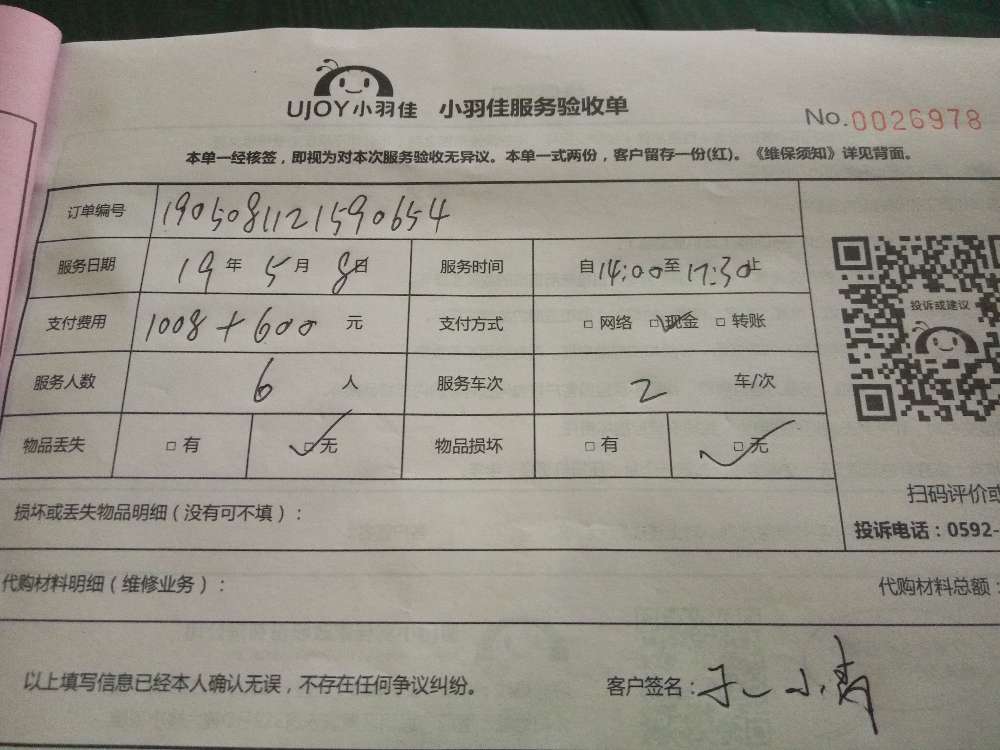 UJOY小羽佳 小羽佳服务验收单
No.0026978
本单一经核签，即视为对本次服务验收无异议。本单一式两份，客户留存一份(红)。《维保须知》详见背面。
订单编号 1905081121590654
服务日期 19年5月8日 服务时间 自14:00至17:30止
支付费用 1008+600 元 支付方式 □网络 ☑现金 □转账
投诉或建议
服务人数 6 人 服务车次 2 车/次
物品丢失 □有 ☑无 物品损坏 □有 ☑无
扫码评价或
损坏或丢失物品明细（没有可不填）：
投诉电话：0592-
代购材料明细（维修业务）： 代购材料总额：
以上填写信息已经本人确认无误，不存在任何争议纠纷。 客户签名：